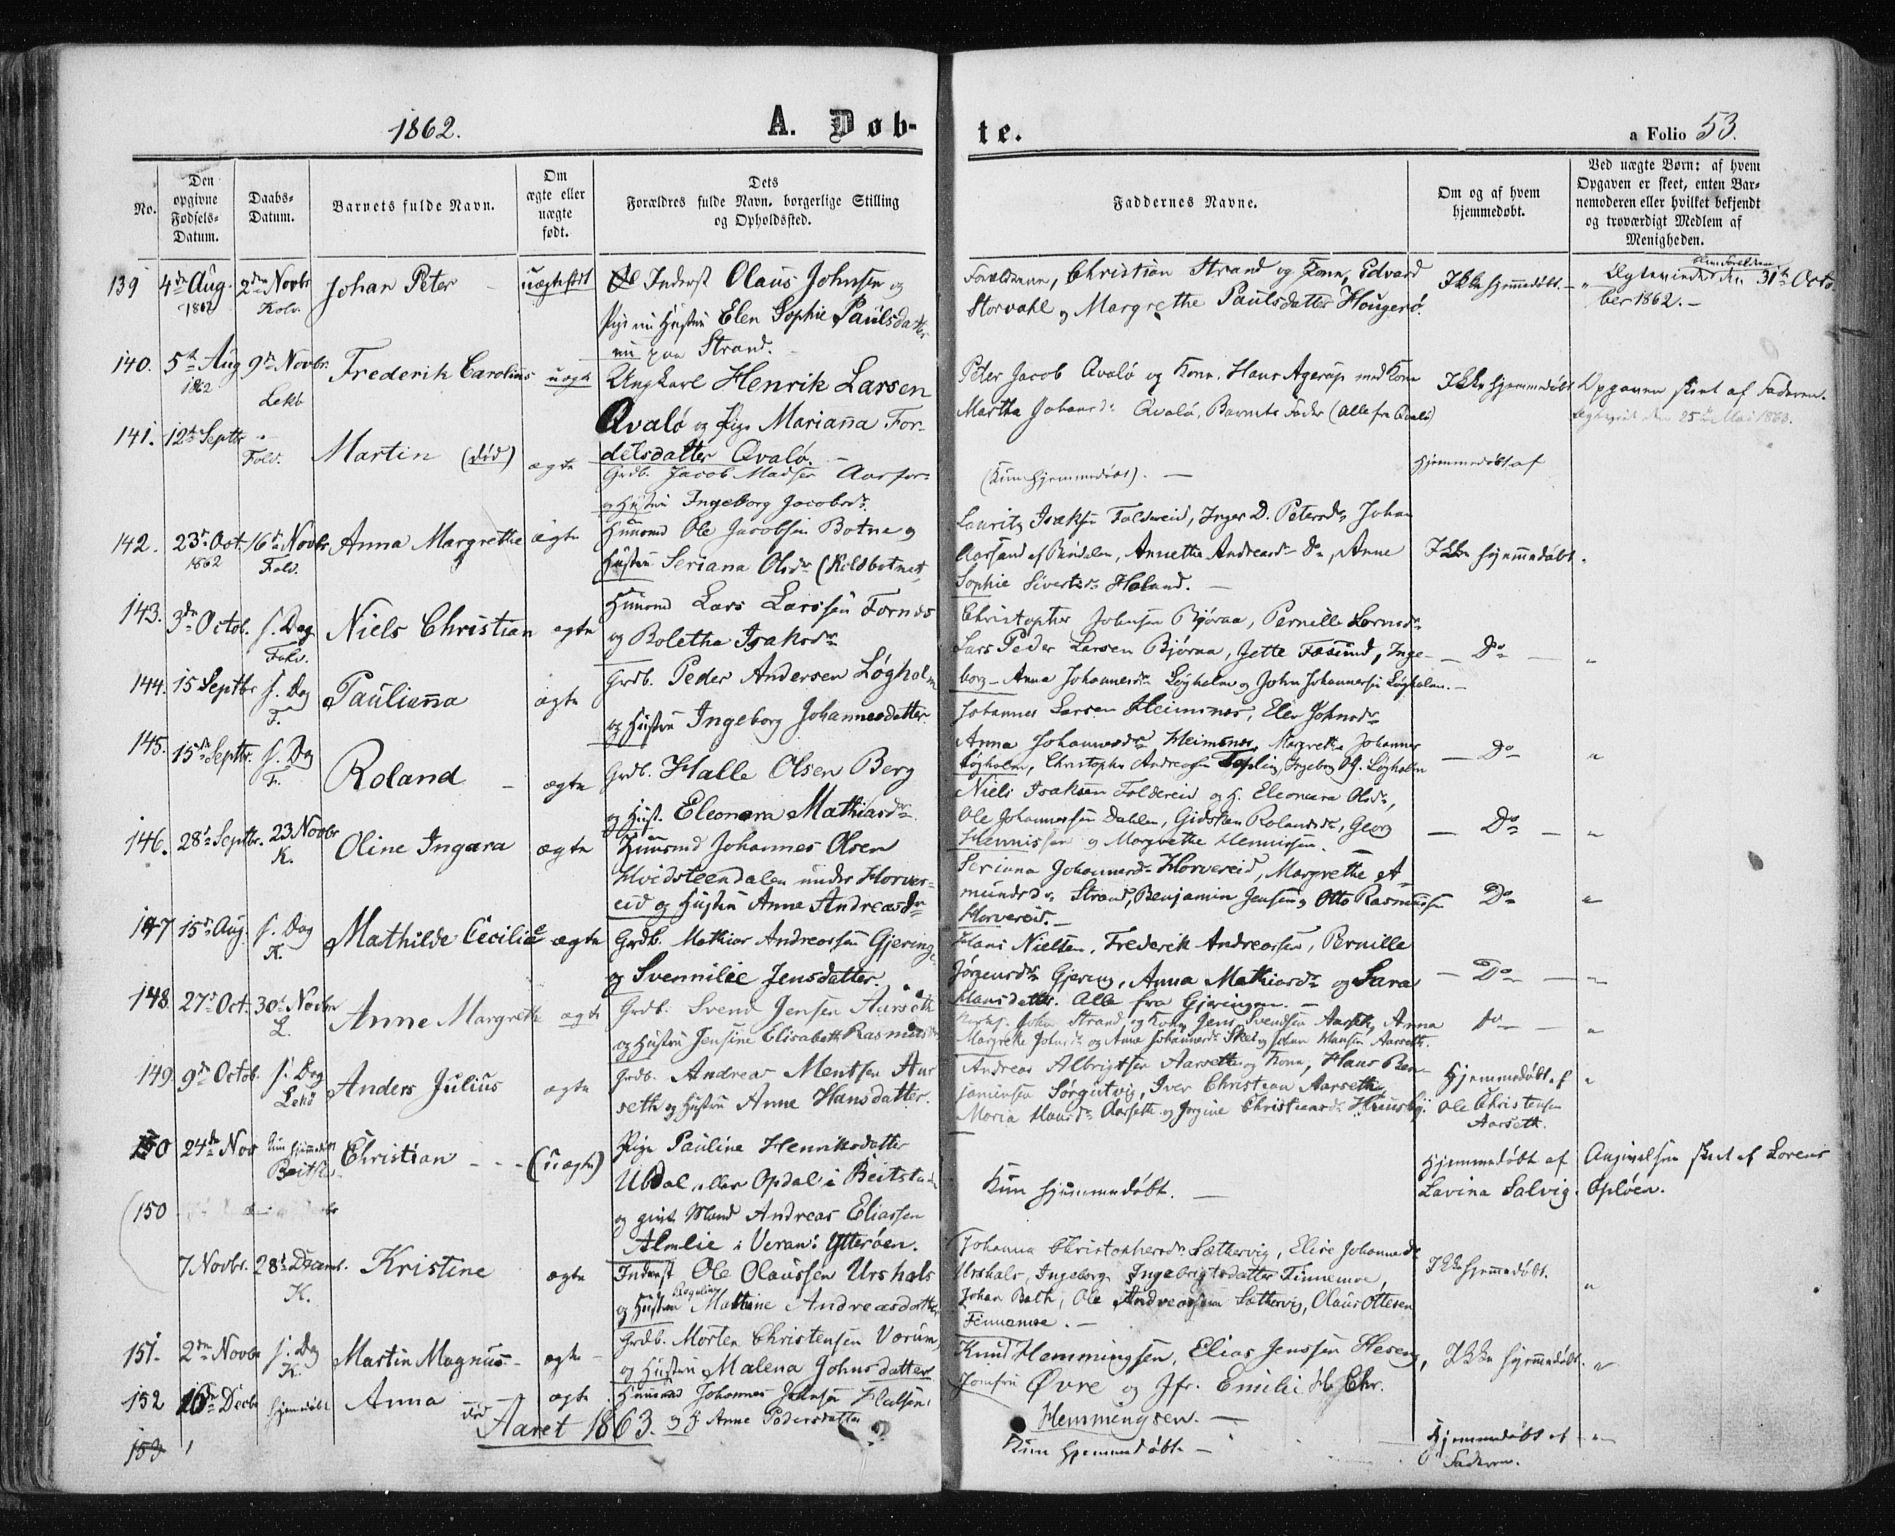 1862.
A. Døb-
te.
a Folio 53.
No.
Den opgivne Fødsels-Datum.
Daabs-Datum.
Barnets fulde Navn.
Om ægte eller uægte født.
Dets Forældres fulde Navn, borgerlige Stilling og Opholdssted.
Faddernes Navne.
Om og af hvem hjemmedøbt.
Ved uægte Børn: af hvem Opgaven er skeet, enten Barnemoderen eller hvilket bekjendt og troværdigt Medlem af Menigheden.
139 4de Aug. 1862 2den Novbr Johan Peter uægtefødt Inderst Olaus Johnsen og
Pige nu Hustru Elen Sophie Paulsdatter
nu paa Strand.
Christian Strand og Kone, Edvard
Storvahl og Margrethe Paulsdatter Hougerø.
Ikke hjemmedøbt.
31te Octo-
ber 1862.
140. 5te Aug 1862 9de Novbr. Lekø Frederik Carolius uægte Ungkarl Henrik Larsen
Qvalø og Pige Marianna For-
delsdatter Qvalø.
Peter Jacob Qvalø og Kone, Hans Agerup med Kone
Martha Johansdr Qvalø, Barnets Fader (Alle fra Qvalø)
Ikke hjemmedøbt
Opgaven skeet af Faderen.
25de Mai 1863.
141. 12te Septbr Fold. Martin (død) ægte Grdb. Jacob Madsen Aarfor
og Hustru Ingeborg Jacobsdr
(Kun hjemmedøbt).
Hjemmedøbt af
142. 23de Oct. 1862 16de Novbr. Fold. Anna Margrethe ægte Huusmd Ole Jacobsen Botne og
Hustru Seriana Olsdr (Koldbotnet)
Lauritz Isaksen Foldereid, Inger D. Petersdr Johan
Aarsand af Rindalen, Annetha Andreasdr Do, Anne
Sophie Sivertsdr Høland.
Ikke hjemmedøbt.
143. 3die Octob. s. Dag Fold. Niels Christian ægte Huusmd Lars Larssen Fornes
og Boletha Isaksdr
Christopher Johnsen Bjøraa, Pernille Larsdr
Lars Peder Larsen Bjøraa, Jette Fæsund, Inge-
borg Anna Johannesdr Løgholm og John Johannessen Løgholm.
Do
144. 15 Septbr s. Dag F. Paulianna ægte Grdb. Peder Andersen Løgholm
og Hustru Ingeborg Johannesdatter
Johannes Larsen Heimsnes, Elen Johnsdr
Anna Johannesdr Heimsnes, Margrethe Johannes
Løgholm, Christopher Andreassen Teplin, Ingeborg Løgholm
Do
145. 15de Septbr. s. Dag F. Roland ægte Grdb. Halle Olsen Berg
og Hust. Eleonora Mathiasdr
Niels Isaksen Foldereid og H. Eleonora Olsdr,
Ole Johannessen Dahlen, Gidsken Rolandsdr, Georg
Hennissen og Margrethe Hennissen.
Do
146. 28de Septbr. 23 Novbr K. Oline Ingara ægte Huusmd Johannes Olsen
Hvidsteendalen under Horver-
eid og Hustru Anne Andreasdr
Seriana Johannesdr Horvereid, Margrethe A-
mundsdr Strand, Benjamin Jensen, Otto Rasmussen
Horvereid.
Do
147 15de Aug. s. Dag K. Mathilde Cecilie ægte Grdb. Mathias Andreassen Gjeringe
og Svennilie Jensdatter.
Hans Nielsen, Frederik Andreassen, Pernille
Jørgensdr Gjering, Anna Mathiasdr og Sara
Hansdatter. Alle fra Gjeringen.
Do
148. 27de Oct. 30te Novbr L. Anne Margrethe ægte Grdb. Svend Jensen Aarseth
og Hustru Jensine Elisabeth Rasmusdr
John Strand og Kone, Jens Svendsen Aarseth, Anna
Margrethe Johnsdr og Anne Johannesdr Skei og Johan Hansen Aarseth.
Do
149 9de Octob. s. Dag Lekø Anders Julius ægte Grdb. Andreas Mentsen Aar
seth og Hustru Anne Hansdatter.
Andreas Albrigtsen Aarseth og Kone, Hans Ben-
jaminsen Sørgutvig, Iver Christian Aarseth,
Maria Hansdr Aarseth og Jorgine Christiansdr
Hjemmedøbt af
Ole Christensen
Aarseth.
150 24de Nov Kun hjemmedøbt Beitst. Christian (uægte) Pige Pauline Henriksdatter
Ubdal eller Opdal i Beitstaden
og givt Mand Andreas Eliassen
Almlie i Veran i Ytterøen.
Kun hjemmedøbt.
Hjemmedøbt af
Lavina Salvig.
Angivelsen skeet af Lorens
Opløen.
(150
7 Novbr. 28de Decemb. K. Kristine ægte Inderst Ole Olaussen Urshals
og Hustru Mathine Andreasdatter
Johanna Christophersdr Sæthervig, Elise Johannesdr
Urshals, Ingeborg Ingebrigtsdatter Finnemoe,
Johan Bath, Ole Andreassen Sæthervig, Olaus Ottesen
Finnemoe.
Ikke hjemmedøbt.
151. 2den Novbr s. Dag K. Martin Magnus ægte Grdb. Morten Christensen Værum,
og Hustru Malena Johnsdatter
Knud Hemmingsen, Elias Jenssen Heseng,
Jomfru Øvre og Jfr. Emilie M. Chr.
Hemmingsen.
Ikke hjemmedøbt.
152 16de Decbr hjemmedøbt Anna død ægte Huusmd Johannes Johnsen
og H Anne Pedersdatter
Kun hjemmedøbt
Hjemmedøbt af
Faderen.
Aaret 1863.
153